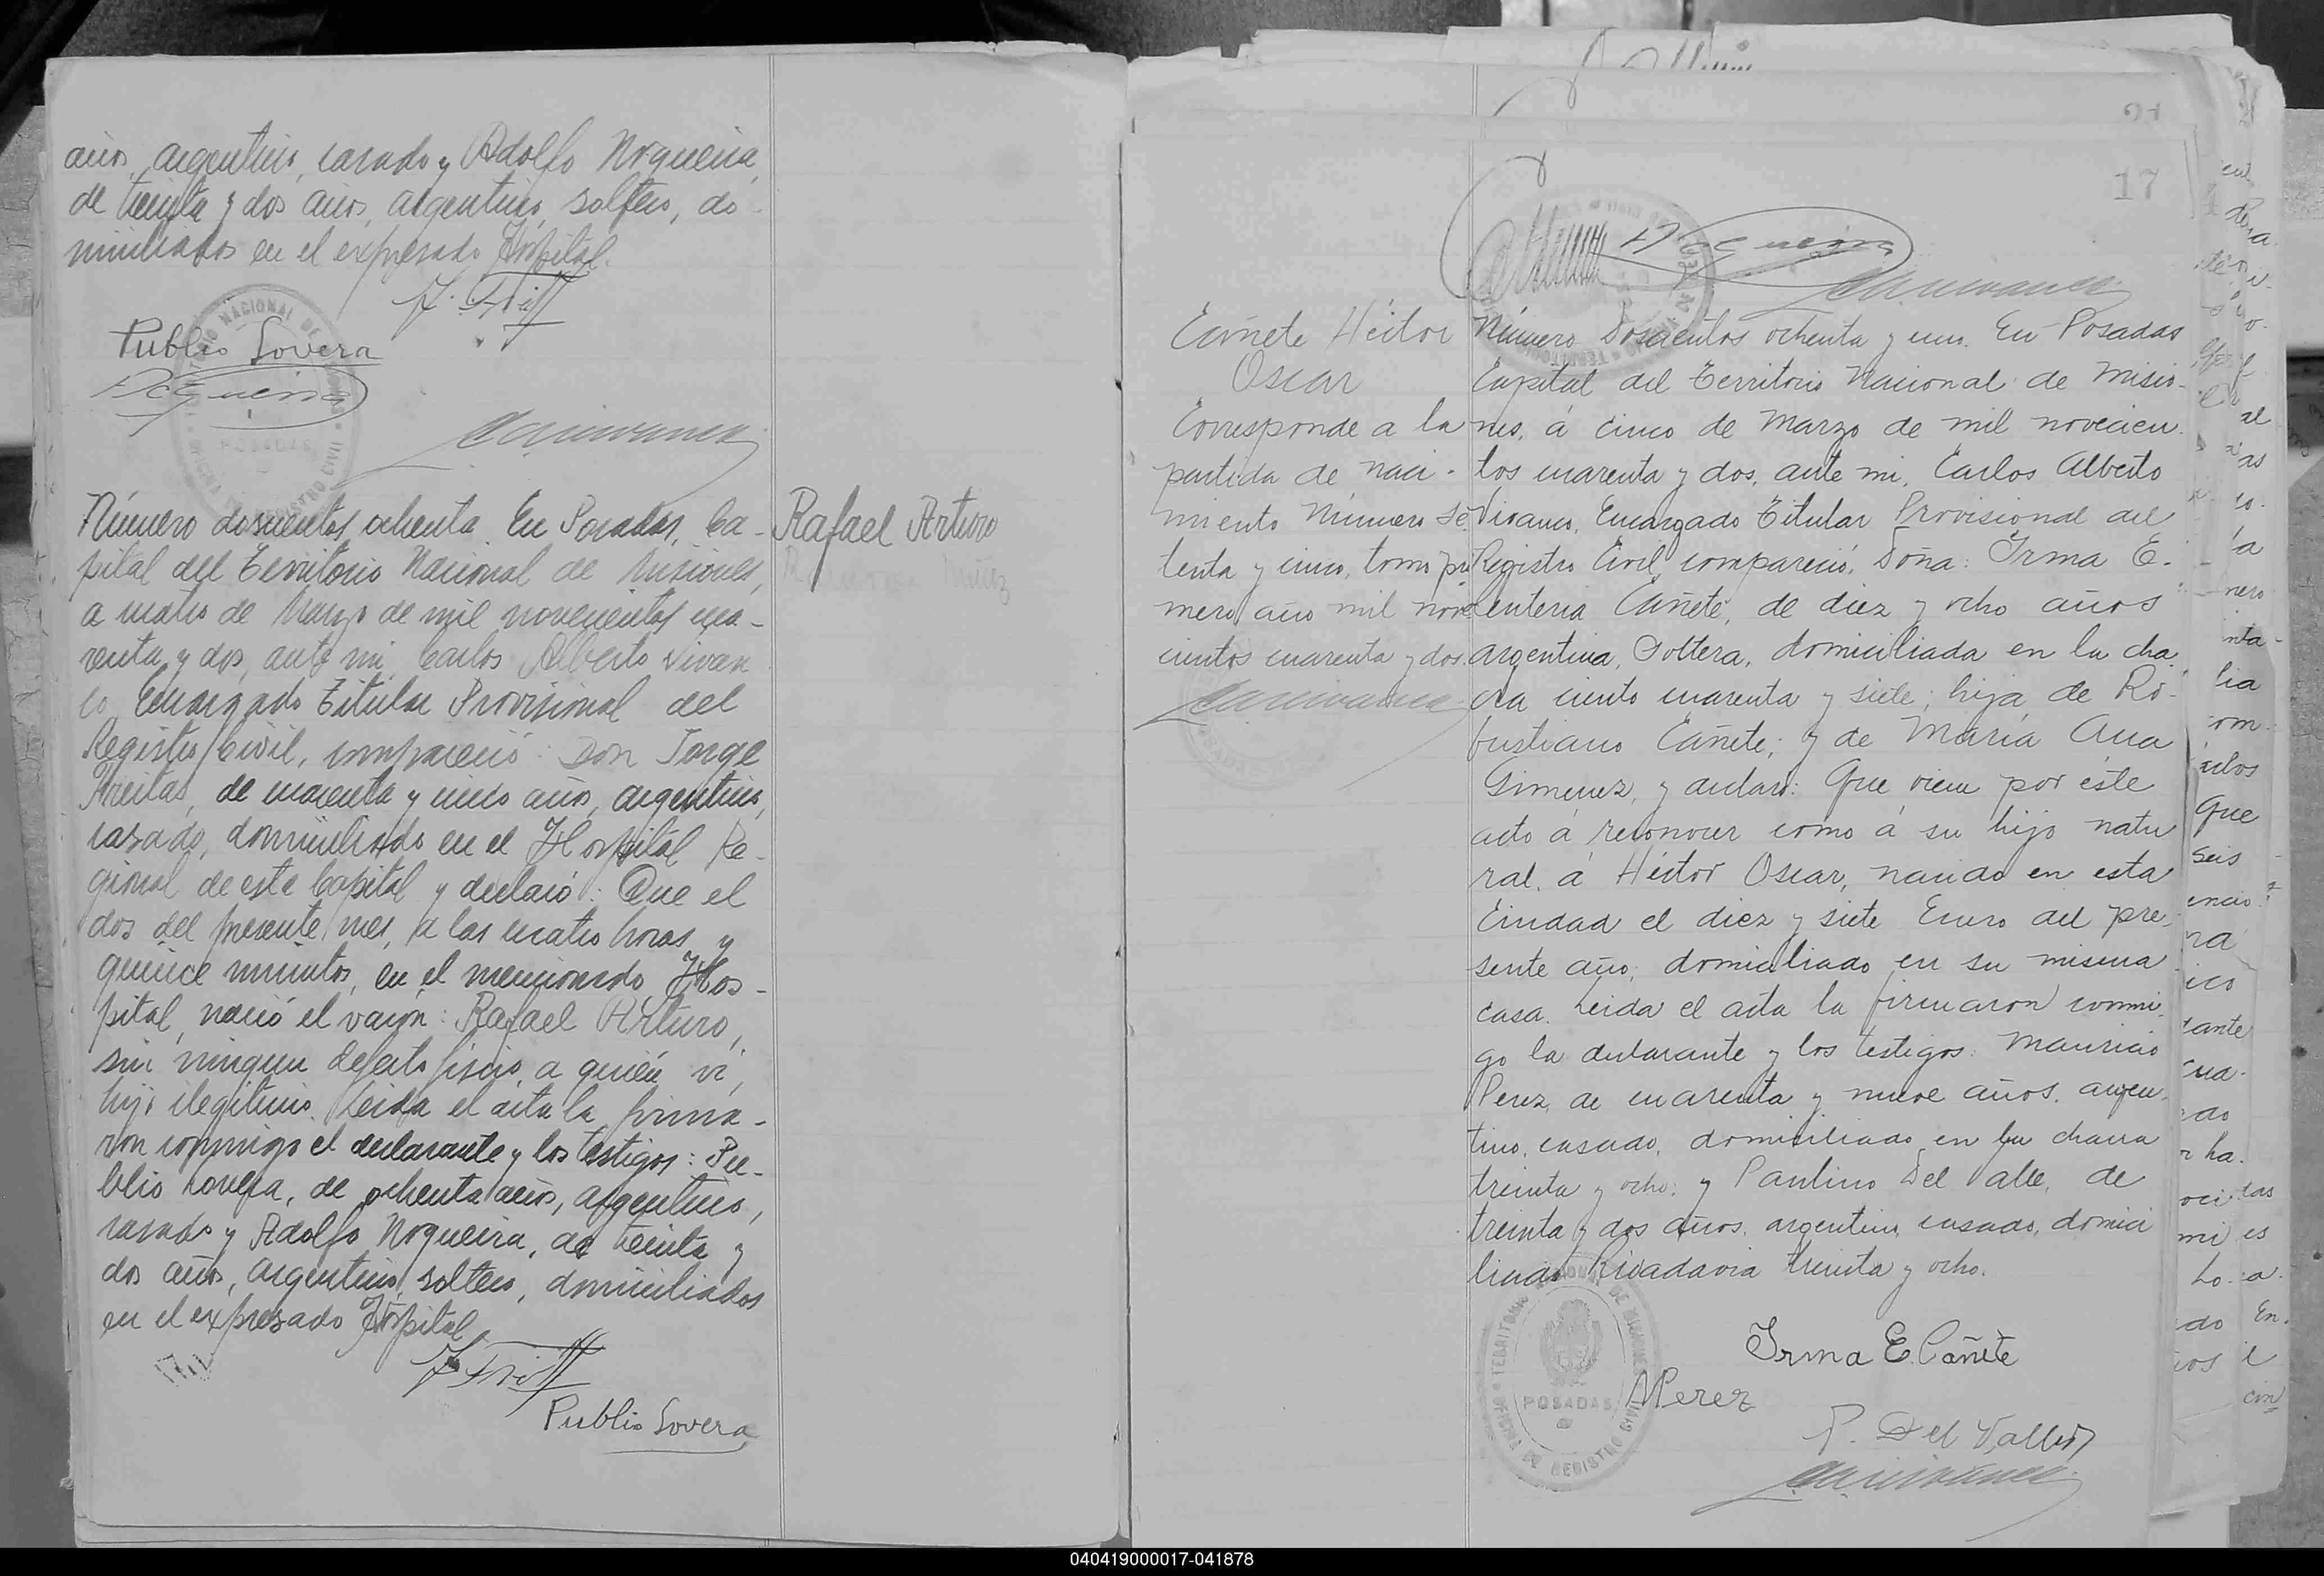 años, argentino, casado y Adolfo Noqueira,
de treinta y dos años, argentino, soltero, do-
miciliados en el expresado Hospital.
Publio Lovera
Número doscientos ochenta. En Posadas, Ca-
pital del Territorio Nacional de Misiones,
a cuatro de Marzo de mil novecientos cua-
renta y dos, ante mi, Carlos Alberto Vivan
co Encargado Titular Provisional del
Registro Civil, compareció: Don Jorge
Freitas, de cuarenta y cinco años, argentino,
casado, domiciliado en el Hospital Re-
gional de esta Capital y declaró: Que el
dos del presente mes, a las cuatro horas y
quince minutos, en el mencionado Hos-
pital, nació el varón: Rafael Arturo,
sin ningun defecto fisico, a quién vi,
hijo ilegitimo. Leida el acta la firma-
ron conmigo el declarante y los testigos: Pu-
blio Lovera, de ochenta años, argentino,
casado y Adolfo Noqueira, de treinta y
dos años, argentino, soltero, domiciliados
en el expresado Hospital.
Publio Lovera
Rafael Arturo
Nuñez
17
Cañete Héctor
Oscar
Corresponde a la
partida de naci-
miento Número se
tenta y cinco, tomo pri
mero año mil nove
cientos cuarenta y dos.
Número Doscientos ochenta y uno. En Posadas
Capital del Territorio Nacional de Misio-
nes, á cinco de Marzo de mil novecien-
tos cuarenta y dos, ante mi, Carlos Alberto
Vivanco, Encargado Titular Provisional del
Registro Civil, compareció, Doña: Irma E-
enteria Cañete, de diez y ocho años
argentina, Soltera, domiciliada en la cha
cra ciento cuarenta y siete; hija de Ro-
bustiano Cañete; y de María Ana
Gimenez, y declaro: Que viene por éste
acto á reconocer como á su hijo natu
ral, á Héctor Oscar, nacido en esta
Ciudad el diez y siete Enero del pre-
sente año; domiciliado en su misma
casa. Leida el acta la firmaron conmi-
go la declarante y los testigos: Mauricio
Perez, de cuarenta y nueve años, argen-
tino, casado, domiciliado en la chacra
treinta y ocho; y Paulino Del Valle, de
treinta y dos años, argentino, casado, domici
liado Rivadavia treinta y ocho.
Irma E. Cañete
MPerez
P. Del Valle
TERRITORIO NACIONAL DE MISIONES
POSADAS
REGISTRO CIVIL
040419000017-041878